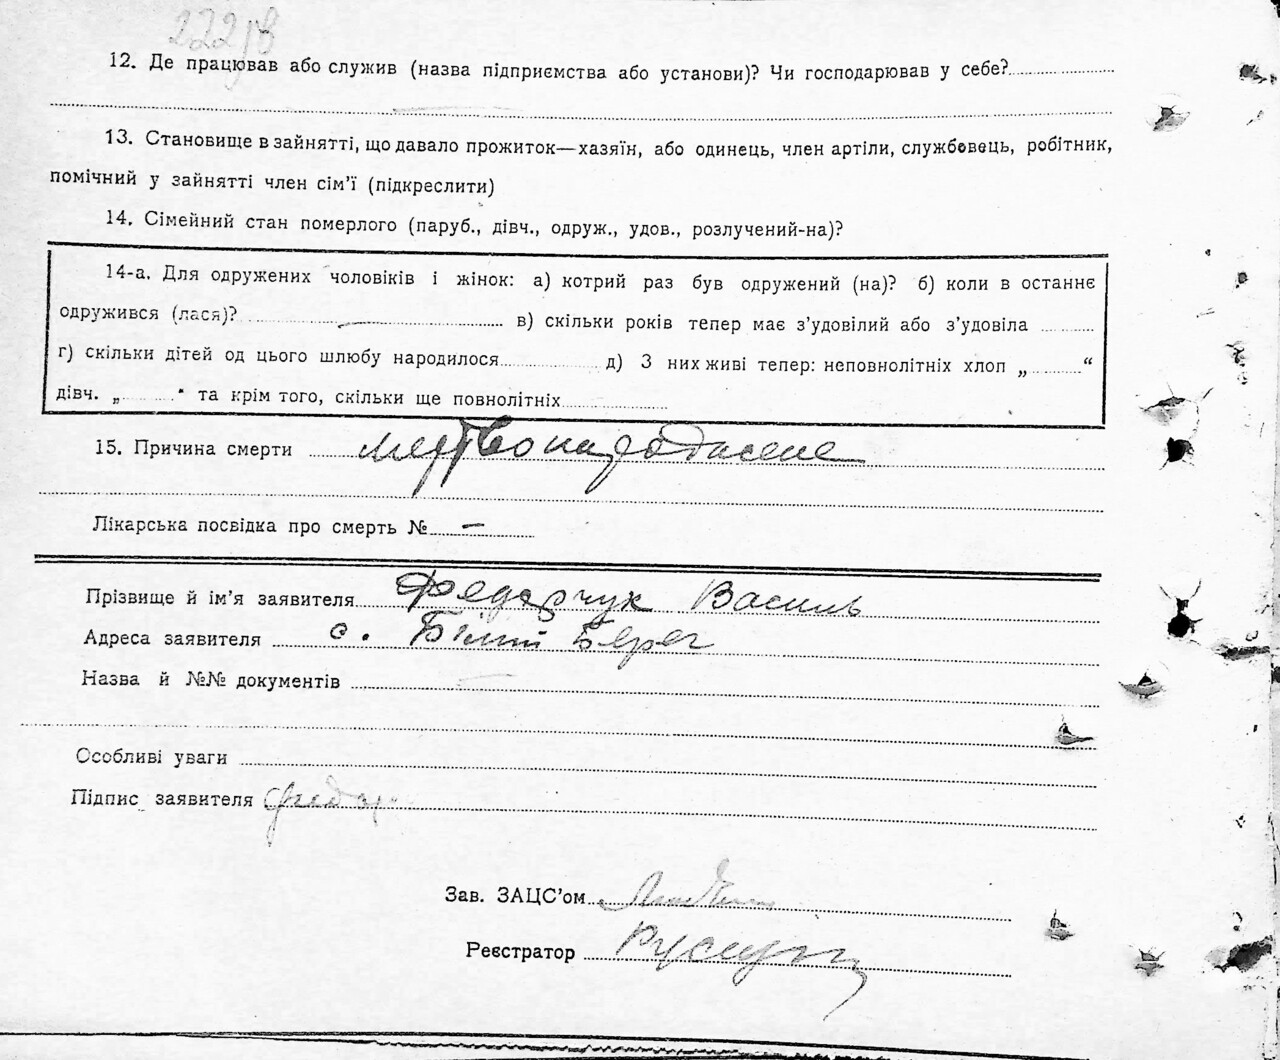 222
12. Де працював або служив (назва підприємства або установи)? Чи господарював у себе?
13. Становище в зайнятті, що давало прожиток—хазяїн, або одинець, член артіли, службовець, робітник,
помічний у зайнятті член сім’ї (підкреслити)
14. Сімейний стан померлого (паруб., дівч., одруж., удов., розлучений-на)?
14-а. Для одружених чоловіків і жінок: а) котрий раз був одружений (на)? б) коли в останнє
одружився (лася)? в) скільки років тепер має з’удовілий або з’удовіла
г) скільки дітей од цього шлюбу народилося д) З них живі тепер: неповнолітніх хлоп „ “
дівч. „ “ та крім того, скільки ще повнолітніх
15. Причина смерти
Лікарська посвідка про смерть № —
Прізвище й ім’я заявителя Федорчук Василь
Адреса заявителя с. Білий Берег
Назва й №№ документів
Особливі уваги
Підпис заявителя
Зав. ЗАЦС’ом
Реєстратор